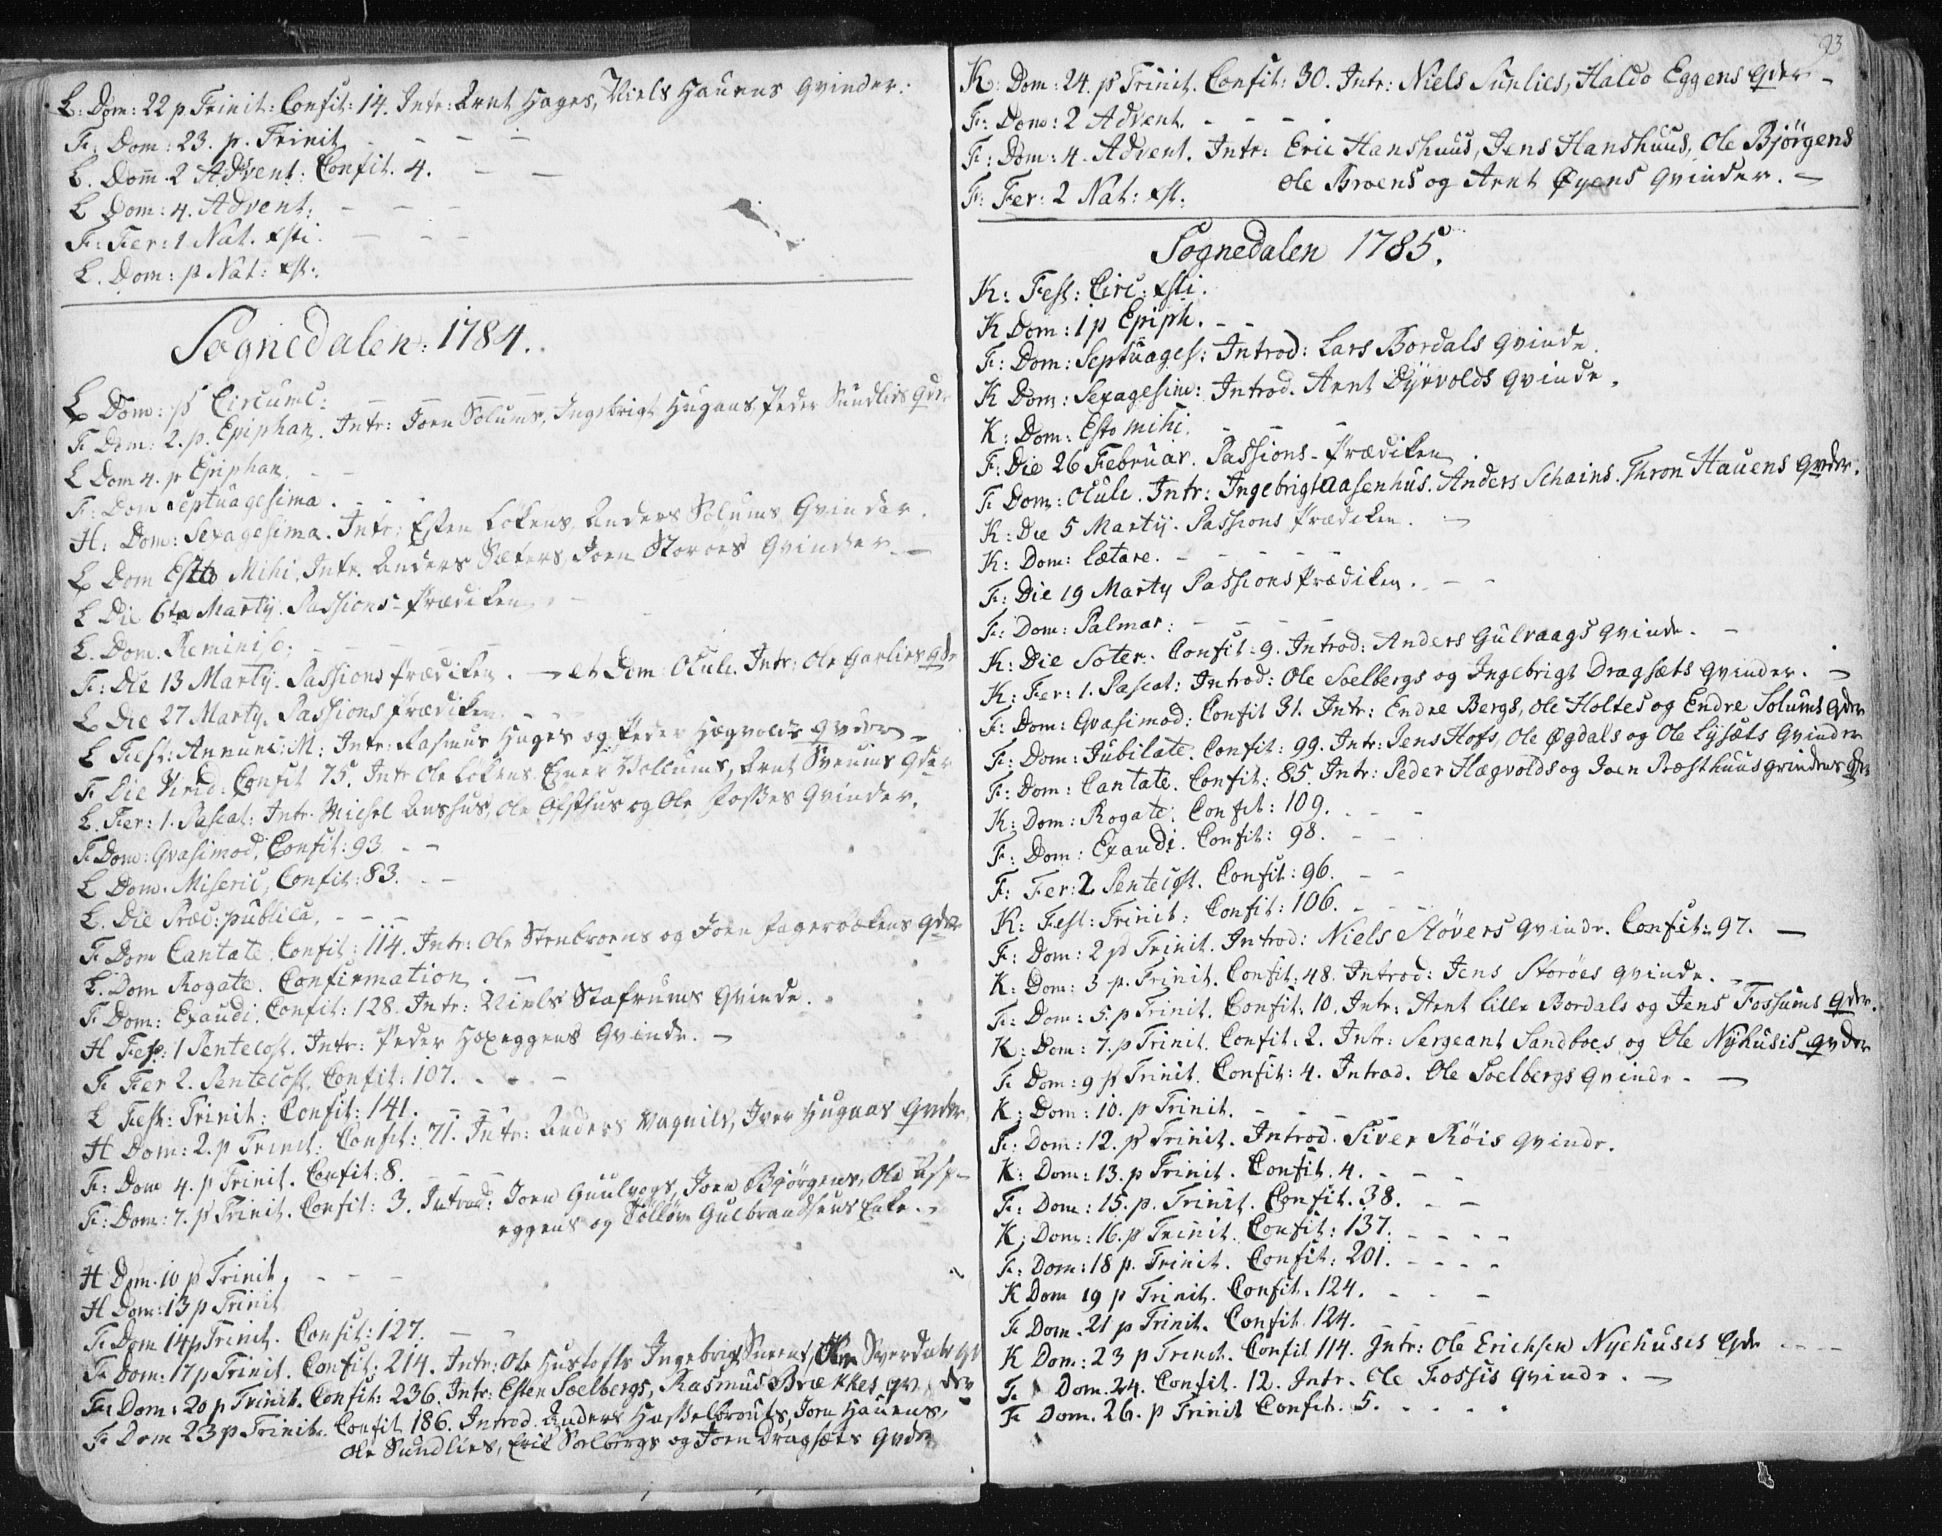 L: Dom: 22 p Trinit: Confit: 14. Intr: Arnt Hages, Niels Hauens Qvinder.
F: Dom: 23. p. Trinit. - - - -
L. Dom̅ 2 Advent: Confit. 4. - -
L Dom: 4. Advent: - - -
F: Fer: 1 Nat. Xsti. - - -
L. Dom: p Nat: Xst:.
Sognedalen: 1784.
L Dom: p Circumc: - - - -
F Dom: 2. p. Epiphan. Intr: Joen Solums, Ingebrigt Hugaas Peder Sundlies Qder
L Dom 4. p Epiphan. - -
F: Dom Septuagesima. - - -
H: Dom: Sexagesima. Intr: Esten Løkens Anders Solums Qvinder.
L Dom Esto Mihi. Intr. Anders Sæters, Joen Storøes Qvinder. -
L Die 6ta Martij. Passions-Prædiken. -
L. Dom. Reminisc: - - - -
F: Die 13 Martij. Passions Prædiken. - et Dom: Oculi. Intr: Ole Garlies Qde
L Die 27 Martij. Passions Prædiken. - -
L Fest: Annunc: M: Intr: Rasmus Hages og Peder Hægvolds Qvder -
F Die Virid: Confit 75. Intr Ole Løkens Ejner Wollums, Arnt Sveums Qder
L. Fer: 1. Pascat: Intr. Michel Aashus, Ole Ofsthus og Ole Fosses Qvinder.
F Dom: Qvasimod. Confit: 93 - -
L Dom. Miseric, Confit: 83. - -
L. Die Præc: publica. - - -
F Dom Cantate. Confit: 114. Intr: Ole Stenbroens og Joen Fagerbækens Qder
L. Dom Rogate. Confirmation. -
F Dom: Exaudi. Confit: 128. Intr: Niels Stafrums Qvinde.
H Fest: 1 Pentecost. Intr: Peder Hoxeggens Qvinde. -
F Fer 2. Pentecost. Confit: 107. - - -
L Fest: Trinit: Confit: 141. - - -
H Dom: 2. p Trinit: Confit: 71. Intr: Anders Vagnils, Iver Hugaas Qvder
F: Dom 4. p Trinit. Confit: 8. - -
F: Dom: 7. p Trinit. Confit: 3. Introd: Joen Guulvogs, Joen Bjørgens, Ole Asp-
eggens og Tolløv Gulbrandsens Enke. -
H Dom. 10 p Trinit. - - -
H Dom: 13 p Trinit
F Dom 14 p Trinit. Confit: 127. - -
F Dom: 17 p Trinit. Confit: 214. Intr: Ole Hustofts Ingebrigt Sneens, Sverdals Qv
F: Dom: 20 p Trinit. Confit: 236. Intr: Esten Soelbergs, Rasmus Brækkes Qvder
F Dom 23 p Trinit. Confit 186. Introd. Anders Hasselbrouts, Joen Hauens,
Ole Sundlies, Eric Soelbergs og Joen Dragsæts Qvder
93
K: Dom: 24. p Trinit. Confit: 30. Intr: Niels Sunlies, Haldo Eggens Qder -
F: Dom: 2 Advent. - - - -
F: Dom: 4. Advent. Intr: Eric Hanshuus, Jens Hanshuus, Ole Bjørgens
Ole Broens og Arnt Øyens Qvinder. -
F: Fer: 2 Nat: Xst.
Sognedalen 1785.
K: Fest: Circ: Xsti.
K Dom: 1 p Epiph. - -
F: Dom: Septuages: Introd: Lars Bordals Qvinde.
K Dom: Sexagesim: Introd. Arnt Dyrvolds Qvinde.
K: Dom: Esto mihi. - - -
F: Die 26 Februar. Passions-Prædiken.
F Dom: Oculi. Intr: Ingebrigt Aasenhus, Anders Schains. Thron Hauens Qvder.
K: Die 5 Martij. Passions Prædiken. -
K: Dom: Lætare. - - - - -
F: Die 19 Marty Passions Prædiken. - -
F: Dom: Palmar: - - - -
K: Die Soter. Confit: 9. Introd: Anders Gulvaags Qvinde. -
K: Fer: 1. Pascat: Introd: Ole Soelbergs og Ingebrigt Dragsæts Qvinder. -
F: Dom: Qvasimod: Confit 31. Intr: Endre Bergs, Ole Holtes og Endre Solums Qder
F: Dom: Jubilate. Confit: 99. Intr: Jens Hofs, Ole Øgdals og Ole Lysæts Qvinder
F: Dom: Cantate. Confit: 85 Intr: Peder Hægvolds og Joen Præsthuus Qvinders
K: Dom: Rogate: Confit: 109. - - -
F: Dom: Exaudi. Confit: 98. - -
F: Fer: 2 Pentecost. Confit: 96. - -
K: Fest: Trinit: Confit: 106. - - -
F: Dom: 2 p Trinit. Introd: Niels Støvers Qvinde. Confit: 97. -
K: Dom: 3 p. Trinit. Confit: 48. Introd: Jens Storøes Qvinde. -
F: Dom: 5. p Trinit. Confit: 10. Intr: Arnt Lille Bordals og Jens Fossums Qder.
K: Dom: 7. p Trinit. Confit: 2. Intr: Sergeant Sandboes og Ole Nyhusis Qvder
F Dom: 9 p Trinit. Confit: 4. Introd. Ole Soelbergs Qvinde - -
K: Dom: 10. p Trinit. - - - - -
F: Dom: 12. p Trinit. Introd. Siver Røis Qvinde.
K: Dom: 13. p Trinit. Confit. 4. - -
F: Dom: 15. p. Trinit. Confit. 38. - -
K: Dom: 16. p Trinit. Confit: 137. - - - -
F: Dom: 18 p. Trinit. Confit: 201. - - - -
K Dom 19 p Trinit. Confit. 124. - - -
F Dom. 21 p Trinit. Confit 124.
K Dom: 23 p Trinit. Confit 114. Intr: Ole Erichsen Nyehuses Qde - - -
F Dom. 24. Confit. 12. Intr. Ole Fossis Qvinde. -
F Dom. 26. p Trinit Confit. 5. - - - -